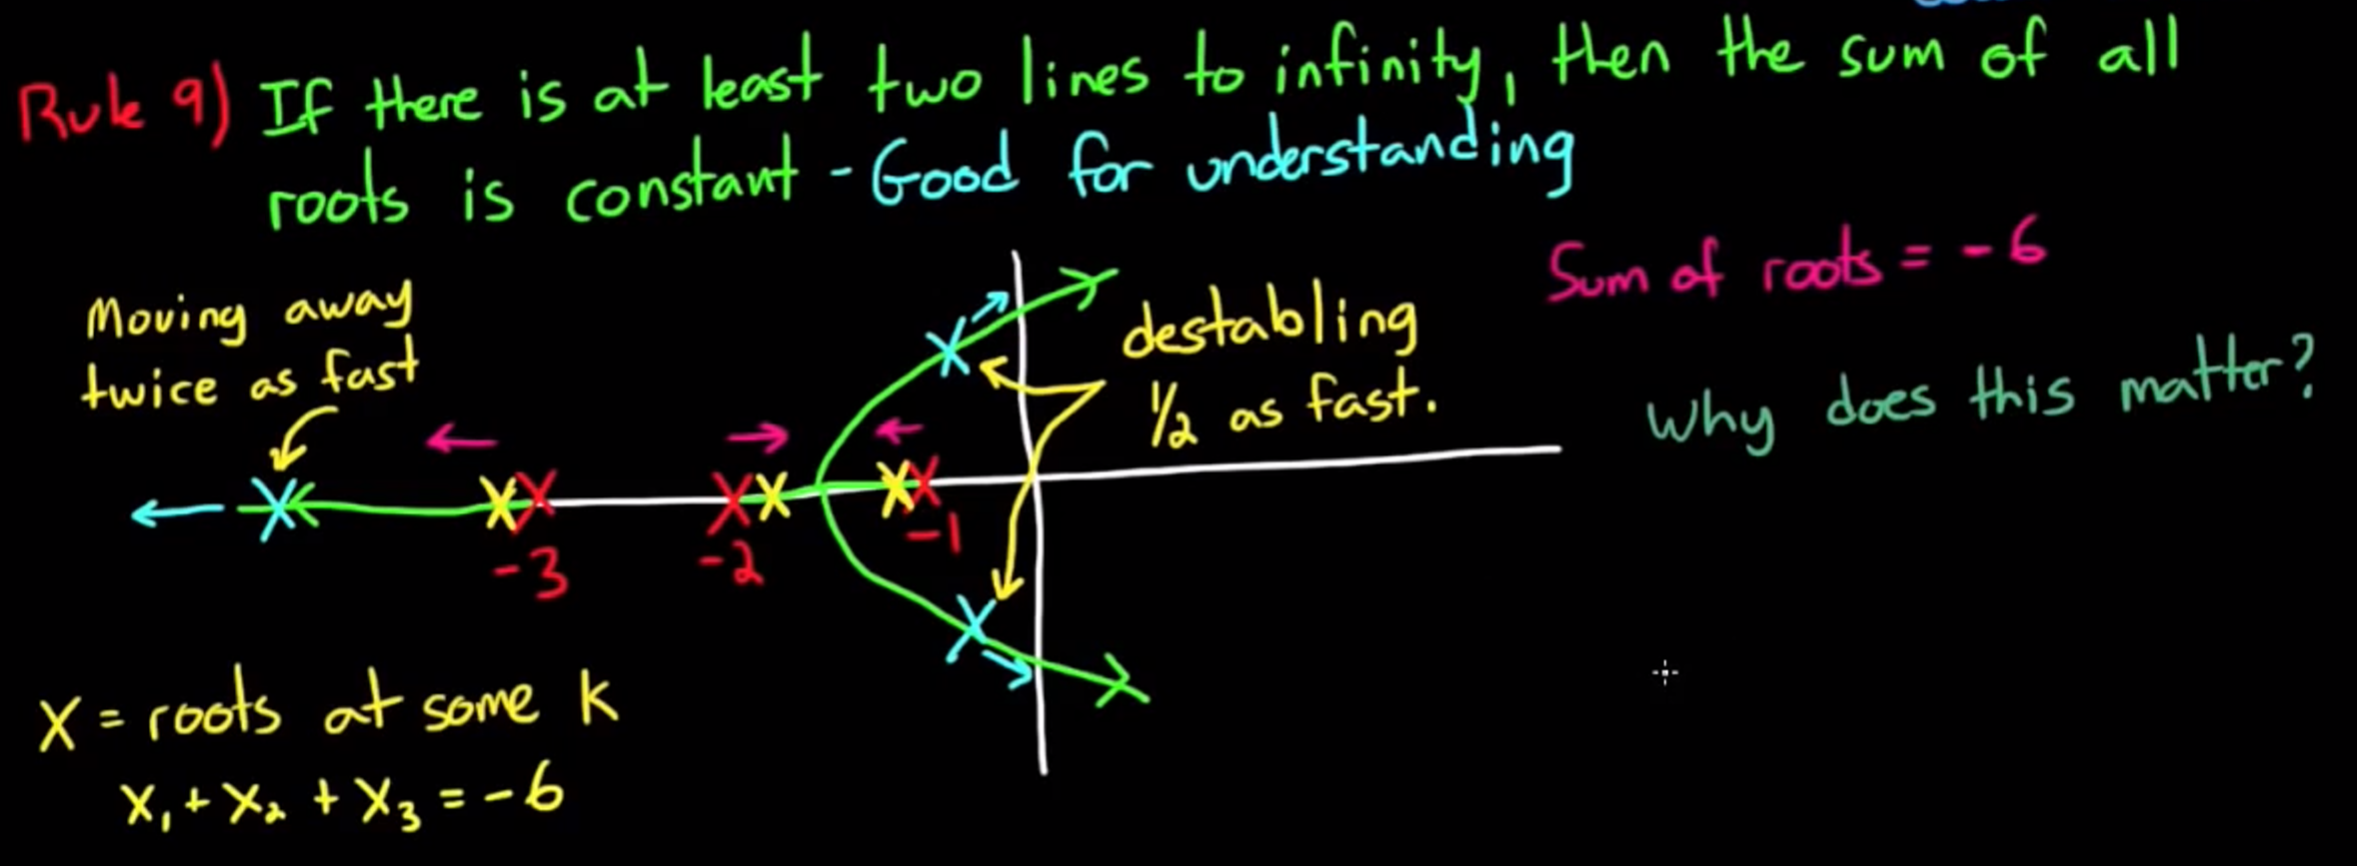 Rule 9) If there is at least two lines to infinity, then the sum of all
roots is constant - Good for understanding
Sum of roots = -6
Moving away
twice as fast
destabling
1/2 as fast.
Why does this matter?
-3
-2
-1
X = roots at some k
X₁ + X₂ + X₃ = -6